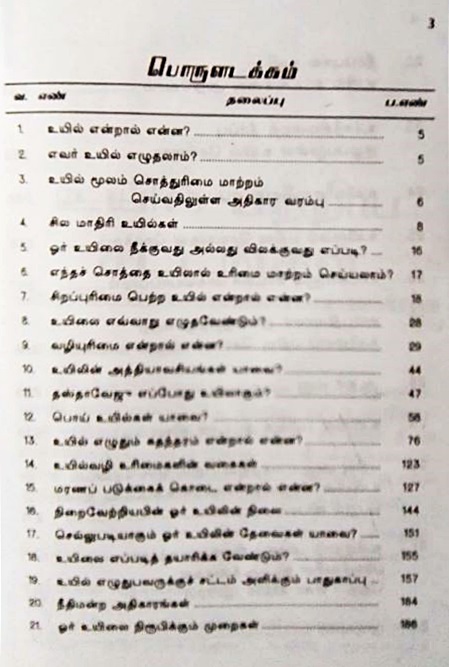 3
பொருளடக்கம்
வ. எண் தலைப்பு ப.எண்
1. உயில் என்றால் என்ன? 5
2. எவர் உயில் எழுதலாம்? 5
3. உயில் மூலம் சொத்துரிமை மாற்றம்
செய்வதிலுள்ள அதிகார வரம்பு 6
4. சில மாதிரி உயில்கள் 8
5. ஓர் உயிலை நீக்குவது அல்லது விலக்குவது எப்படி? 16
6. எந்தச் சொத்தை உயிலால் உரிமை மாற்றம் செய்யலாம்? 17
7. சிறப்புரிமை பெற்ற உயில் என்றால் என்ன? 18
8. உயிலை எவ்வாறு எழுதவேண்டும்? 28
9. வழியுரிமை என்றால் என்ன? 29
10. உயிலின் அத்தியாவசியங்கள் யாவை? 44
11. தஸ்தாவேஜு எப்போது உயிலாகும்? 47
12. பொய் உயில்கள் யாவை? 58
13. உயில் எழுதும் சுதந்தரம் என்றால் என்ன? 76
14. உயில்வழி உரிமைகளின் வகைகள் 123
15. மரணப் படுக்கைக் கொடை என்றால் என்ன? 127
16. நிறைவேற்றியபின் ஓர் உயிலின் நிலை 144
17. செல்லுபடியாகும் ஓர் உயிலின் தேவைகள் யாவை? 151
18. உயிலை எப்படித் தயாரிக்க வேண்டும்? 155
19. உயில் எழுதுபவருக்குச் சட்டம் அளிக்கும் பாதுகாப்பு 157
20. நீதிமன்ற அதிகாரங்கள் 184
21. ஓர் உயிலை நிரூபிக்கும் முறைகள் 186